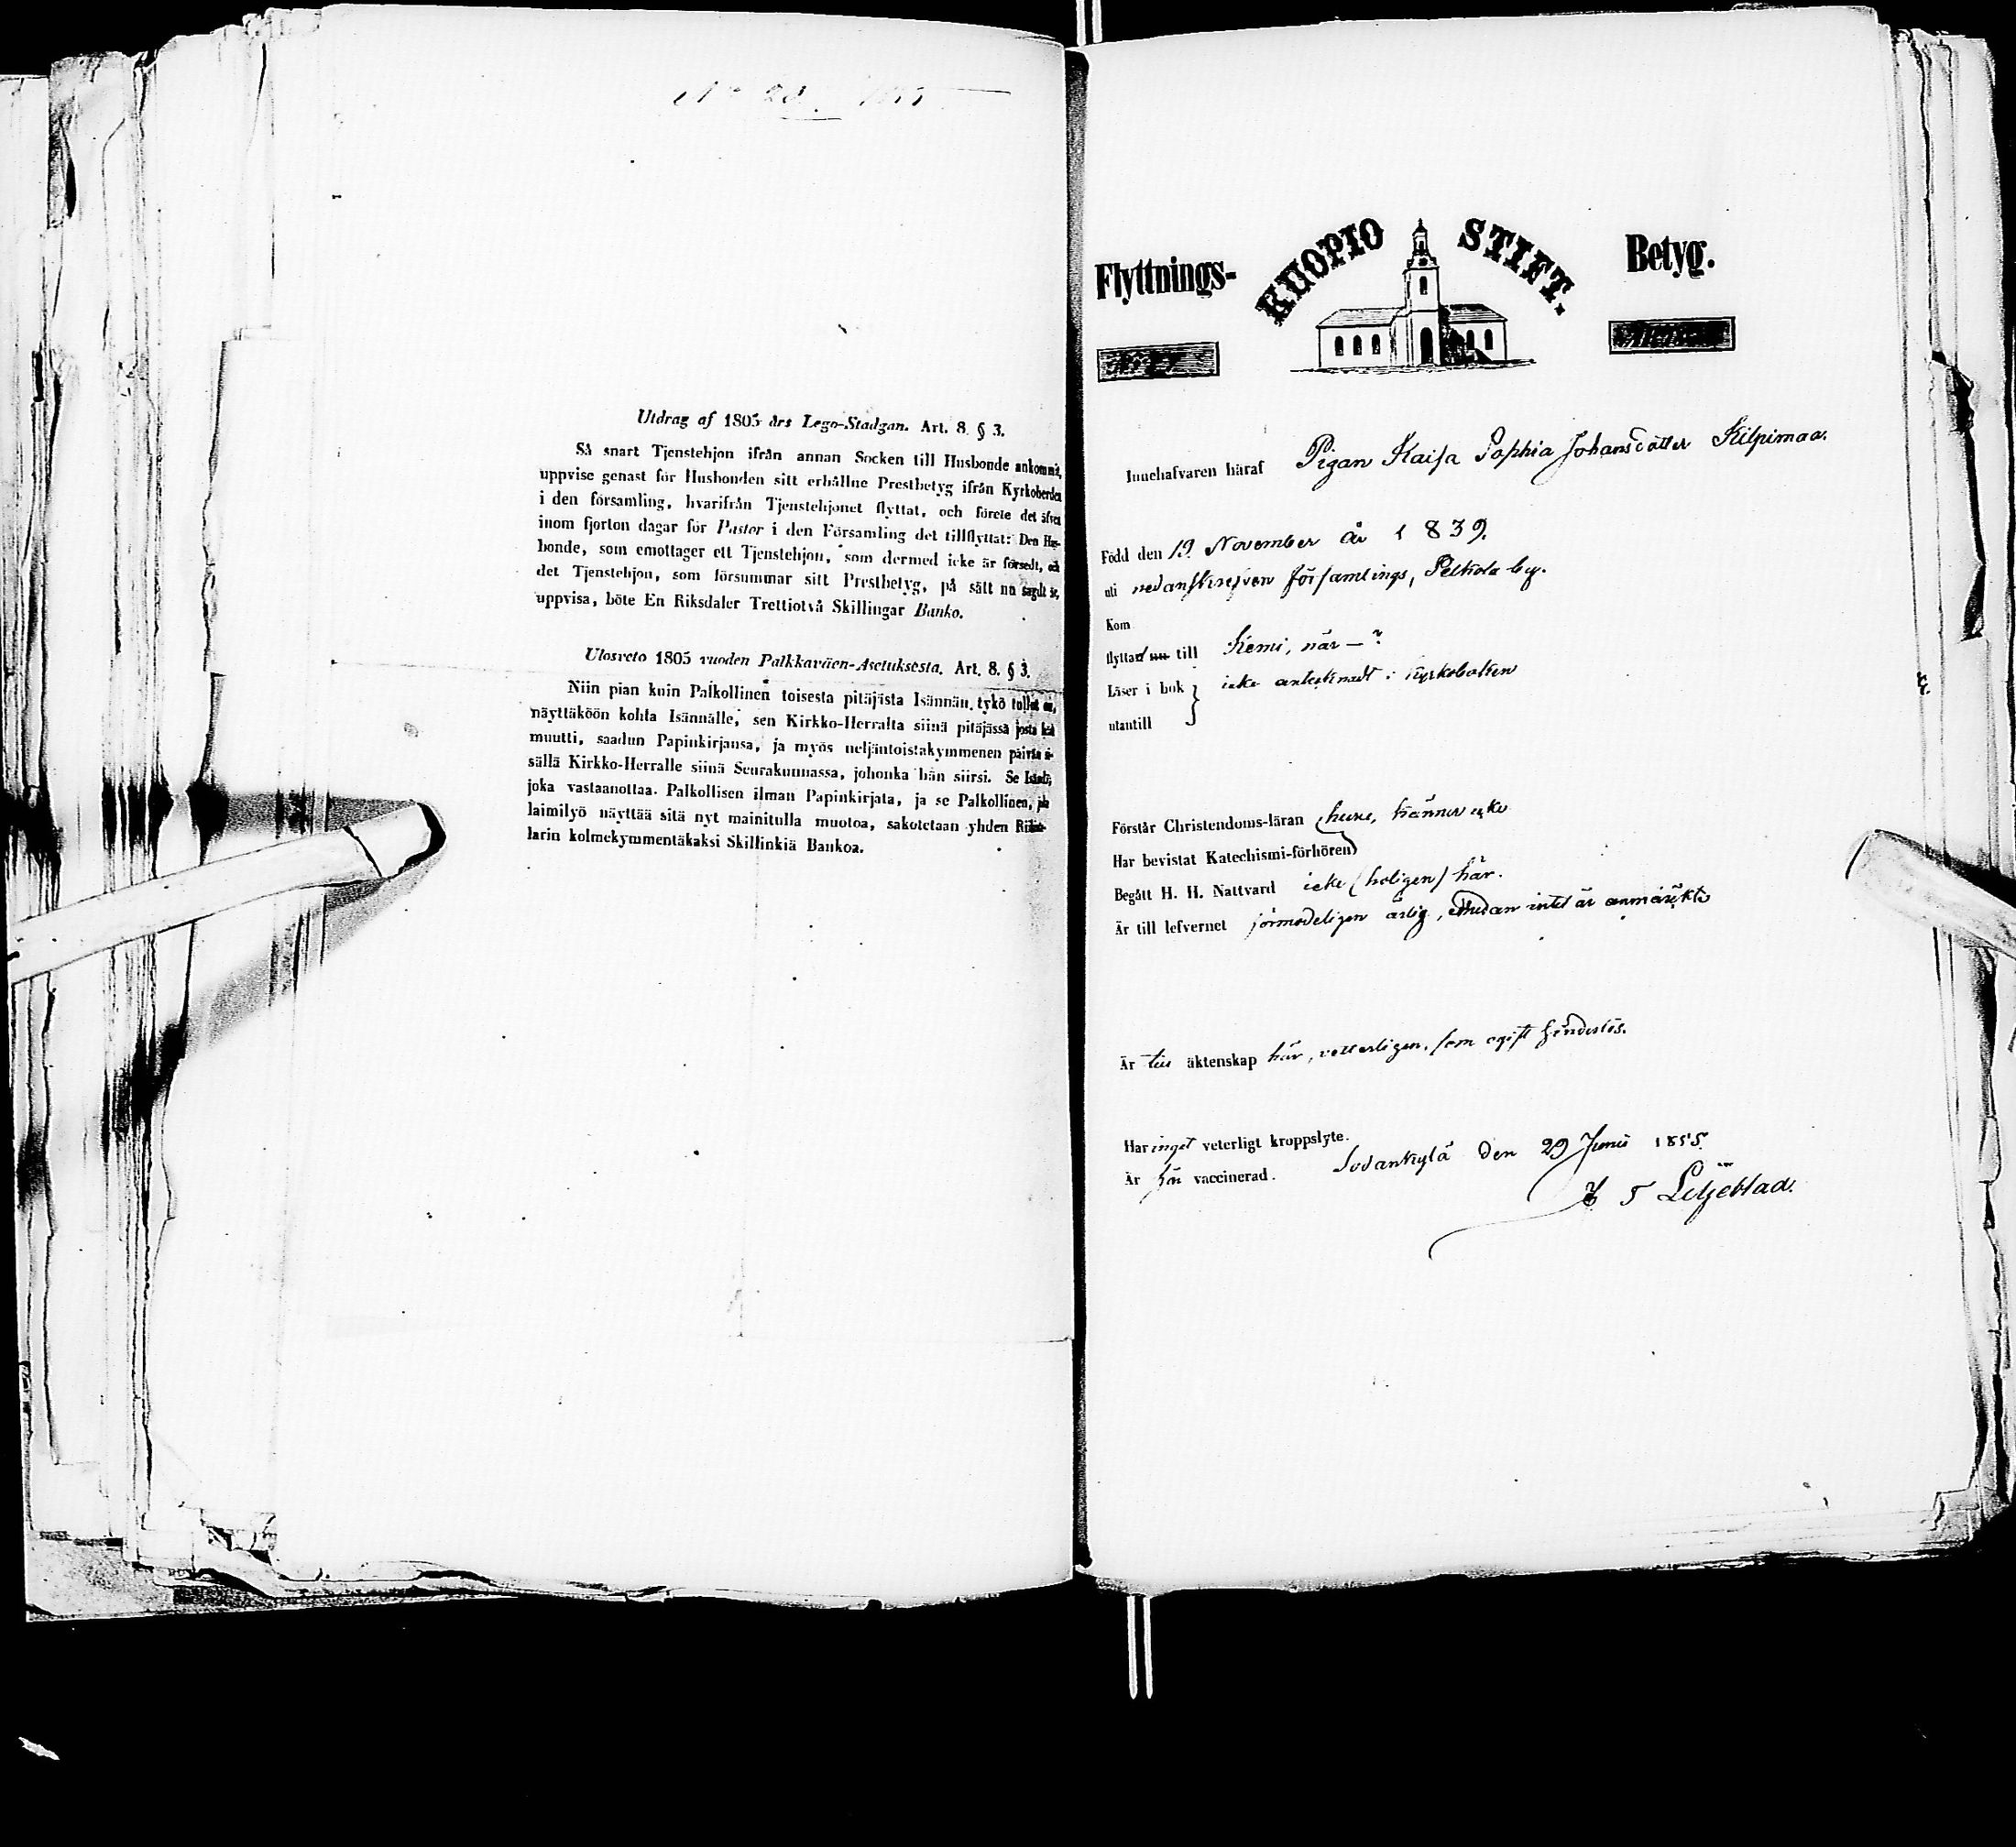 Utdrag af 1805 års Lego-Stadgan. Art. 8. § 3.
Så snart Tjenstehjon ifrån annan Socken till Husbonde ankommit,
uppvise genast för Husbonden sitt erhållne Prestbetyg ifrån Kyrkoherden
i den församling, hvarifrån Tjenstehjonet flyttat, och förete det äfven
inom fjorton dagar för Pastor i den Församling det tillflyttat: Den Hus-
bonde, som emottager ett Tjenstehjon, som dermed icke är försedt, och
det Tjenstehjon, som försummar sitt Prestbetyg, på sätt nu sagdt är,
uppvisa, böte En Riksdaler Trettiotvå Skillingar Banko.
Ulosveto 1805 vuoden Palkkaväen-Asetuksesta. Art. 8. § 3.
Niin pian kuin Palkollinen toisesta pitäjästä Isännän tykö tullut on,
näyttäköön kohta Isännälle, sen Kirkko-Herralta siinä pitäjässä josta hän
muutti, saadun Papinkirjansa, ja myös neljäntoistakymmenen päivän si-
sällä Kirkko-Herralle siinä Seurakunnassa, johonka hän siirsi. Se Isäntä,
joka vastaanottaa Palkollisen ilman Papinkirjata, ja se Palkollinen, joka
laimilyö näyttää sitä nyt mainitulla muotoa, sakotetaan yhden Riksta-
larin kolmekymmentäkaksi Skillinkiä Bankoa.
Flyttnings- KUOPIO STIFT. Betyg.
Innehafvaren häraf Pigan Kaisa Sophia Johansdotter Kilpimaa.
Född den 19 November år 1839.
uti nedanskrefven församlings, Pelkola by.
Kom
flyttad nu till Kemi, när – ?
Läser i bok } icke antecknadt i kyrkoboken
utantill
Förstår Christendoms-läran huru, känner icke
Har bevistat Katechismi-förhören
Begått H. H. Nattvard icke (troligen) här.
Är till lefvernet förmodeligen ärlig, emedan intet är anmärkt
Är till äktenskap här, vetterligen, som ogift hinderlös.
Har inget veterligt kroppslyte.
Är här vaccinerad. Sodankylä den 29 Junii 1855.
J F Liljeblad.